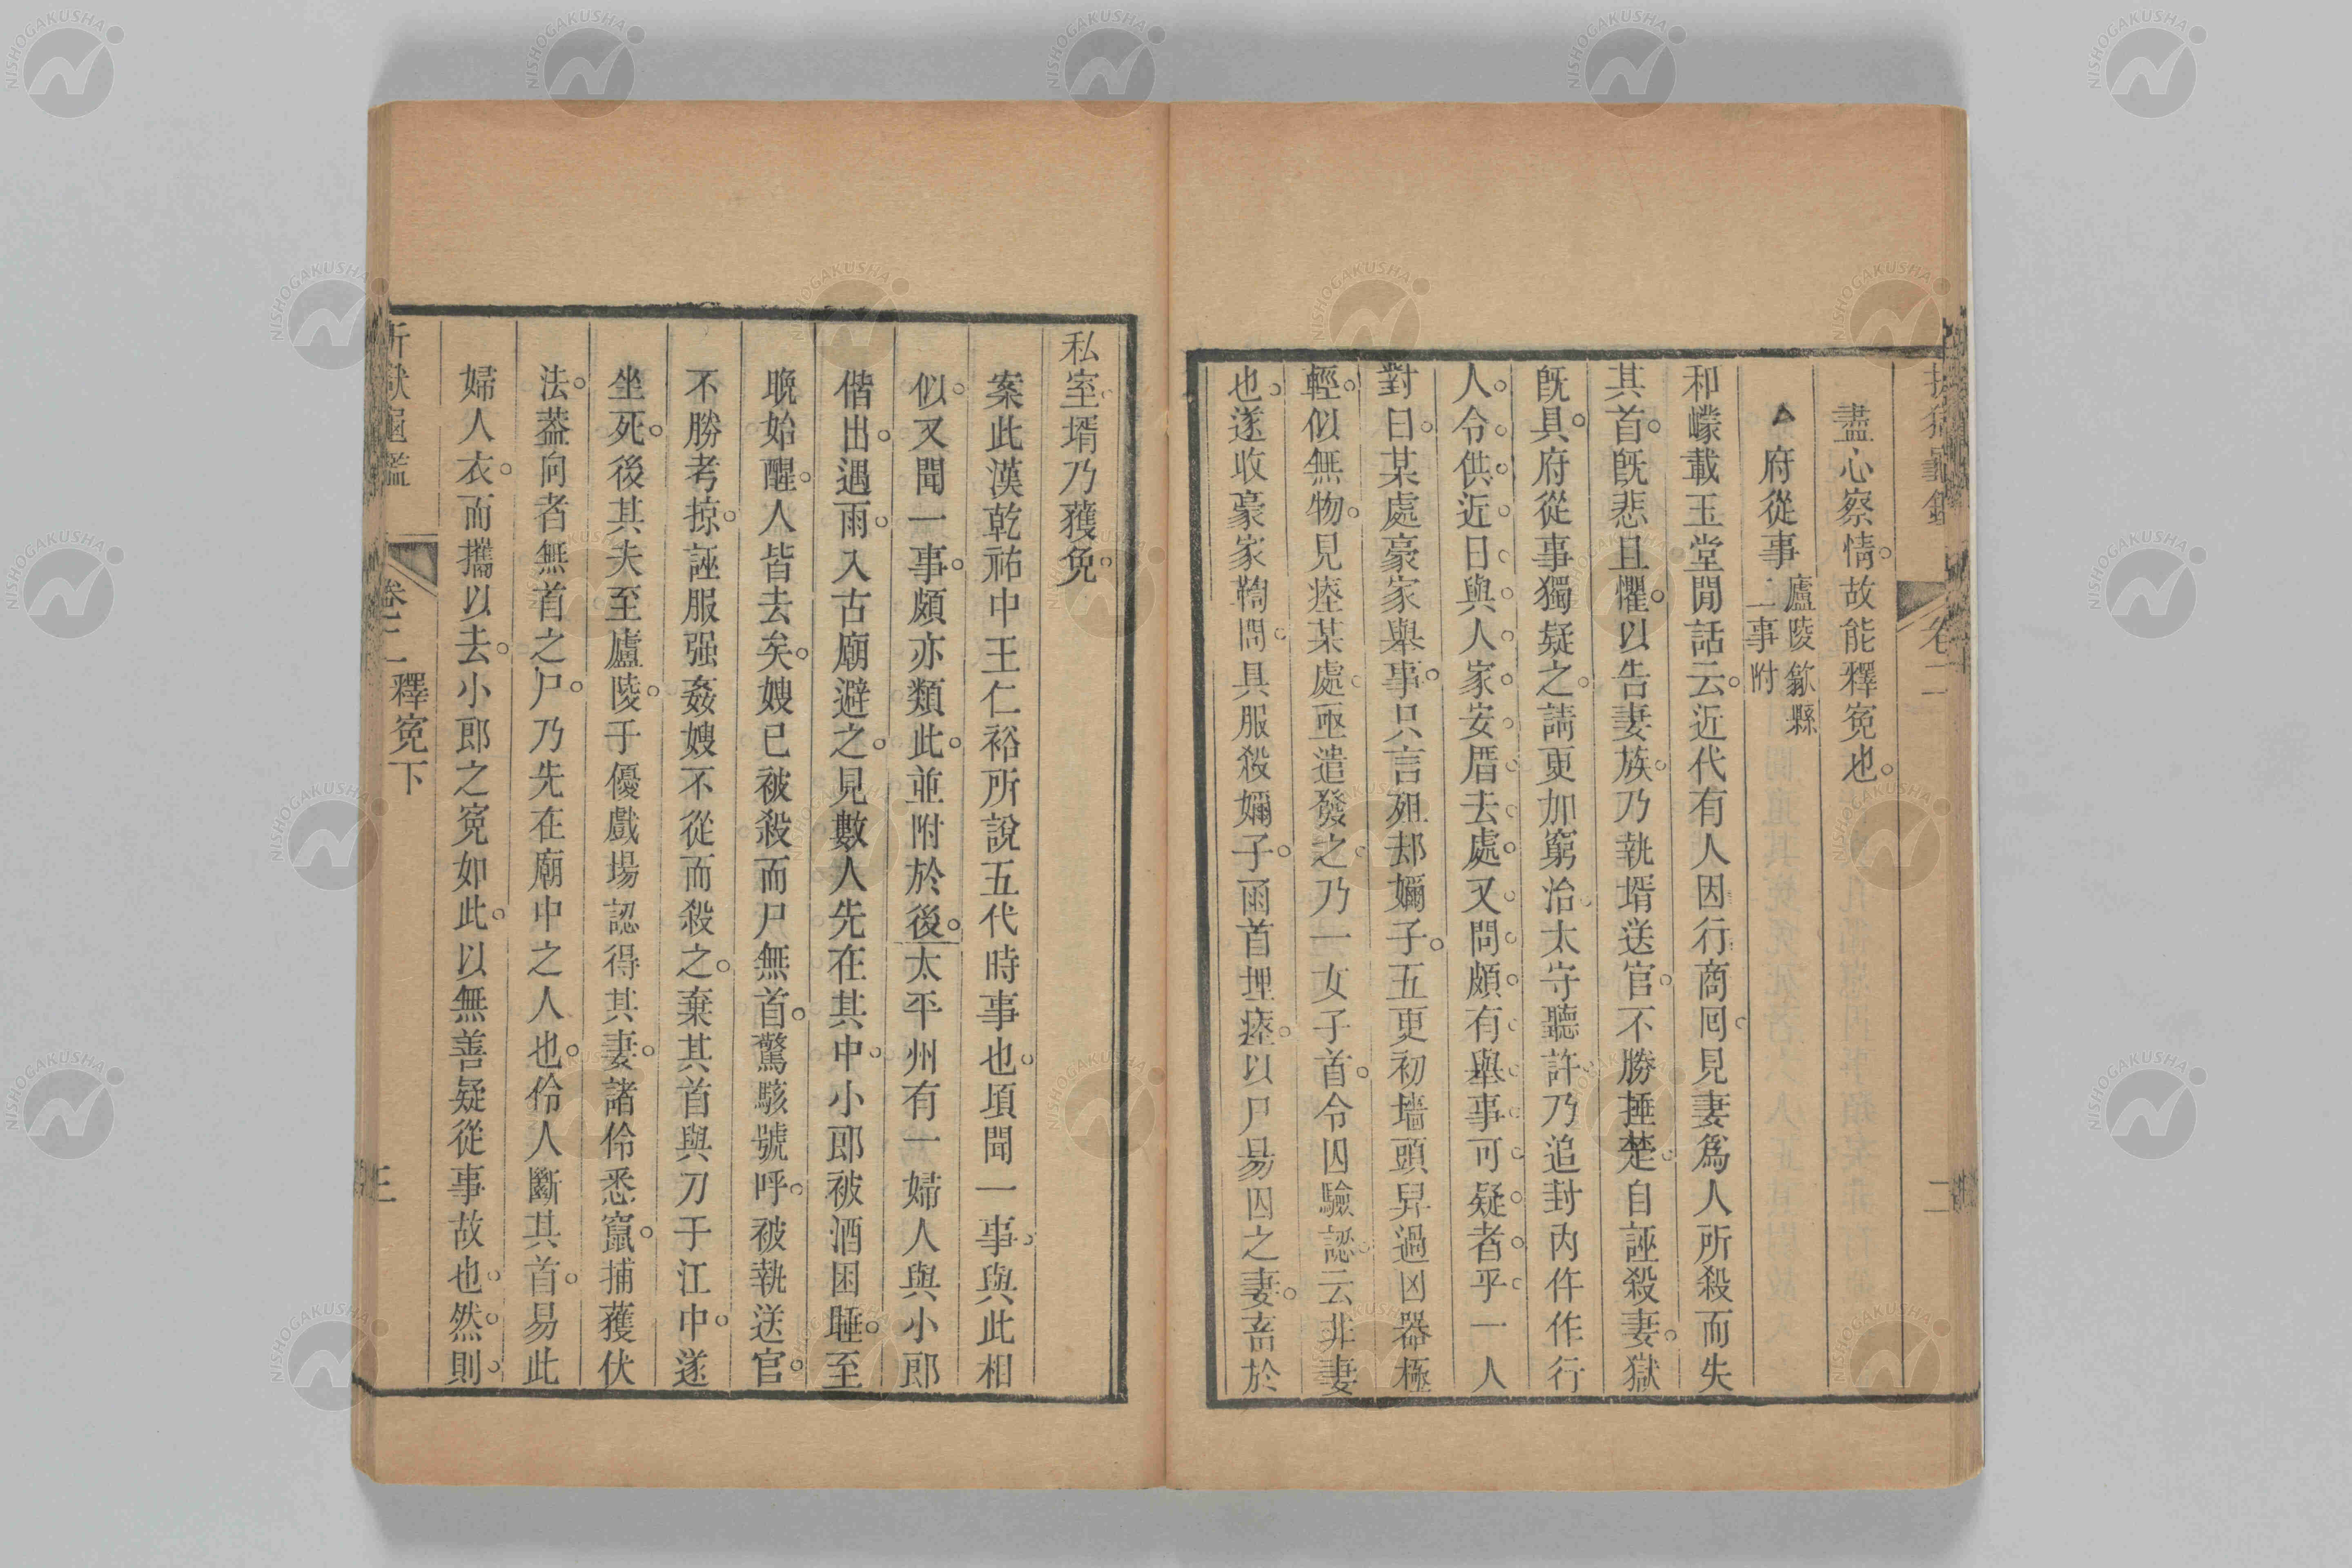 盡心察情。故能釋寃也。
△府從事盧陵歙縣二事附
和㠓載玉堂閒話云。近代有人因行商囘。見妻爲人所殺而失
其首。旣悲且懼。以告妻族。乃執壻送官。不勝捶楚。自誣殺妻。獄
旣具。府從事獨疑之。請更加窮治。太守聽許乃追封内仵作行
人。令。供。近。日。與。人。家。安。厝。去。處。又。問。頗。有。舉。事。可。疑。者。乎。一人
對曰。某處豪家舉事。只言殂却嬭子。五更初墻頭舁過凶器極
輕。似無物。見瘞某處。亟遣發之。乃一女子首。令囚驗認。云非妻
也。遂收豪家鞫問。具服殺嬭子。函首埋瘞。以尸易囚之妻。畜於
私室。壻乃獲免。
案此漢乾祐中王仁裕所說五代時事也。頃聞一事。與此相
似。又聞一事。頗亦類此。並附於後。太平州有一婦人與小郎
偕出。遇雨。入古廟避之。見數人先在其中。小郎被酒困睡。至
晚始醒。人皆去矣。嫂已被殺而尸無首。驚駭號呼。被執送官。
不勝考掠。誣服强姦嫂不從而殺之。棄其首與刀于江中。遂
坐死。後其夫至廬陵。于優戲場認得其妻。諸伶悉竄。捕獲伏
法。葢向者無首之尸。乃先在廟中之人也。伶人斷其首。易此
婦人衣。而攜以去。小郎之寃如此。以無善疑從事故也。然。則。
卷二 釋寃下